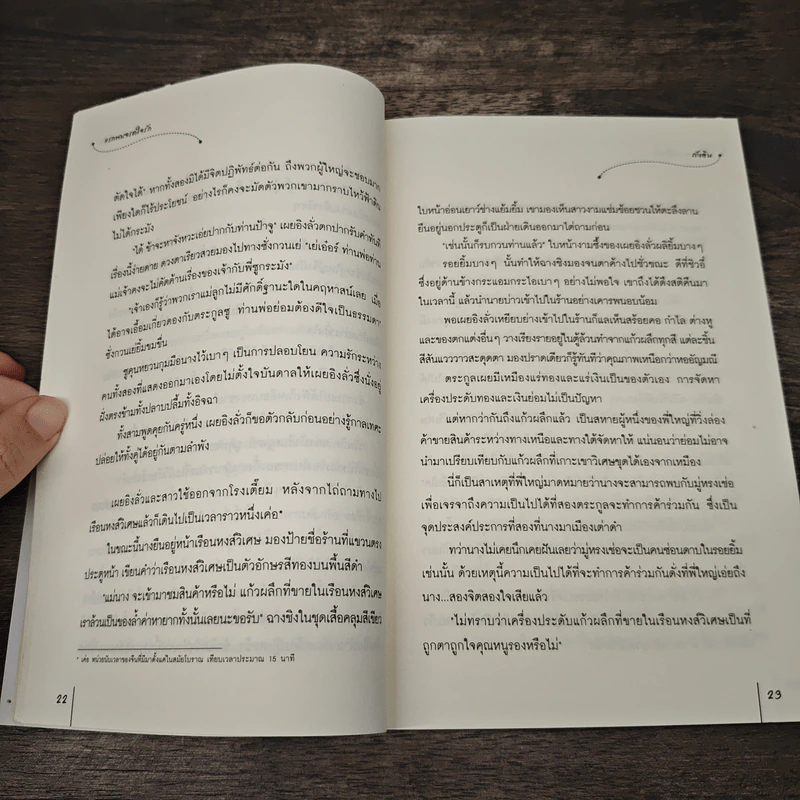 ตัดใจได้" หากทั้งสองมิได้มีจิตปฏิพัทธ์ต่อกัน ถึงพวกผู้ใหญ่จะชอบมาก
เพียงใดก็ไร้ประโยชน์ อย่างไรก็คงจะมัดตัวพวกเขามากราบไหว้ฟ้าดิน
ไม่ได้กระมัง
"ได้ ข้าจะหาจังหวะเอ่ยปากกับท่านป้าจู" เผยอิงลั่วตกปากรับคำทันที
เรื่องนี้ง่ายดาย ดวงตาเรียวสวยมองไปทางซั่งกวนเย่ "เย่เอ๋อร์ ท่านพ่อท่าน
แม่เจ้าคงจะไม่คัดค้านเรื่องของเจ้ากับพี่ซูกระมัง"
"เจ้าเองก็รู้ว่าพวกเราแม่ลูกไม่มีศักดิ์ฐานะใดในคฤหาสน์เลย เมื่อ
ได้อาจเอื้อมเกี่ยวดองกับตระกูลซู ท่านพ่อย่อมต้องดีใจเป็นธรรมดา"
ซั่งกวนเย่ยิ้มขมขื่น
ซูคุนหยวนกุมมือนางไว้เบาๆ เป็นการปลอบโยน ความรักระหว่าง
คนทั้งสองที่แสดงออกมาเองโดยไม่ตั้งใจบันดาลให้เผยอิงลั่วซึ่งนั่งอยู่
ฝั่งตรงข้ามทั้งปลาบปลื้มทั้งอิจฉา
ทั้งสามพูดคุยกันครู่หนึ่ง เผยอิงลั่วก็ขอตัวกลับก่อนอย่างรู้กาลเทศะ
ปล่อยให้ทั้งคู่ได้อยู่กันตามลำพัง
เผยอิงลั่วและสาวใช้ออกจากโรงเตี๊ยม หลังจากไถ่ถามทางไป
เรือนหงส์วิเศษแล้วก็เดินไปเป็นเวลาราวหนึ่งเค่อ*
ในขณะนี้นางยืนอยู่หน้าเรือนหงส์วิเศษ มองป้ายชื่อร้านที่แขวนตรง
ประตูหน้า เขียนคำว่าเรือนหงส์วิเศษเป็นตัวอักษรสีทองบนพื้นสีดำ
"แม่นาง จะเข้ามาชมสินค้าหรือไม่ แก้วผลึกที่ขายในเรือนหงส์วิเศษ
เราล้วนเป็นของล้ำค่าหายากทั้งนั้นเลยนะขอรับ" ฉางชิงในชุดเสื้อคลุมสีเขียว
* เค่อ หน่วยนับเวลาของจีนที่มีมาตั้งแต่ในสมัยโบราณ เทียบเวลาประมาณ 15 นาที
22
กังซิน
ใบหน้าอ่อนเยาว์ช่างแย้มยิ้ม เขามองเห็นสาวงามแช่มช้อยชวนให้ตะลึงลาน
ยืนอยู่นอกประตูก็เป็นฝ่ายเดินออกมาไต่ถามก่อน
"เช่นนั้นก็รบกวนท่านแล้ว" ใบหน้างามซึ้งของเผยอิงลั่วผลิยิ้มบางๆ
รอยยิ้มบางๆ นั้นทำให้ฉางชิงมองจนตาค้างไปชั่วขณะ ดีที่ชิวอี๋
ซึ่งอยู่ด้านข้างกระแอมกระไอเบาๆ อย่างไม่พอใจ เขาถึงได้ดึงสติคืนมา
ในเวลานี้ แล้วนำนายบ่าวเข้าไปในร้านอย่างเคารพนอบน้อม
พอเผยอิงลั่วเหยียบย่างเข้าไปในร้านก็แลเห็นสร้อยคอ กำไล ต่างหู
และของตกแต่งอื่นๆ วางเรียงรายอยู่ในตู้ล้วนทำจากแก้วผลึกทุกสี แต่ละชิ้น
สีสันแวววาวสะดุดตา มองปราดเดียวก็รู้ทันทีว่าคุณภาพเหนือกว่าหออัญมณี
ตระกูลเผยมีเหมืองแร่ทองและแร่เงินเป็นของตัวเอง การจัดหา
เครื่องประดับทองและเงินย่อมไม่เป็นปัญหา
แต่หากว่ากันถึงแก้วผลึกแล้ว เป็นสหายผู้หนึ่งของพี่ใหญ่ที่วิ่งล่อง
ค้าขายสินค้าระหว่างทางเหนือและทางใต้จัดหาให้ แน่นอนว่าย่อมไม่อาจ
นำมาเปรียบเทียบกับแก้วผลึกที่เกาะเขาวิเศษขุดได้เองจากเหมือง
นี่ก็เป็นสาเหตุที่พี่ใหญ่มาดหมายว่านางจะสามารถพบกับมู่หรงเช่อ
เพื่อเจรจาถึงความเป็นไปได้ที่สองตระกูลจะทำการค้าร่วมกัน ซึ่งเป็น
จุดประสงค์ประการที่สองที่นางมาเมืองเต๋าดำ
ทว่านางไม่เคยนึกเคยฝันเลยว่ามู่หรงเช่อจะเป็นคนซ่อนดาบในรอยยิ้ม
เช่นนั้น ด้วยเหตุนี้ความเป็นไปได้ที่จะทำการค้าร่วมกันดั่งที่พี่ใหญ่เอ่ยถึง
นาง...สองจิตสองใจเสียแล้ว
"ไม่ทราบว่าเครื่องประดับแก้วผลึกที่ขายในเรือนหงส์วิเศษเป็นที่
ถูกตาถูกใจคุณหนูรองหรือไม่"
23